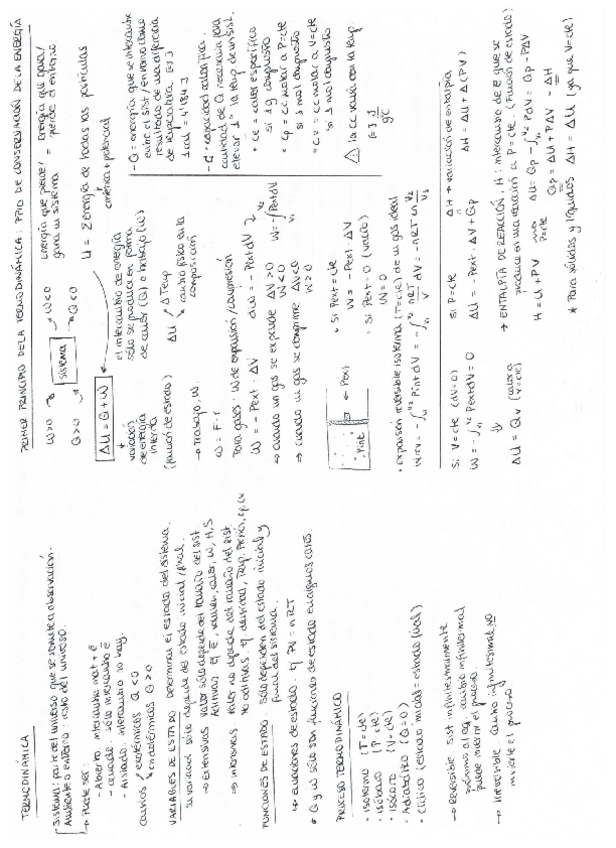 TERMODINÁMICA
Sistema: parte del universo que se somete a observación.
Ambiente o entorno: resto del universo.
→ Puede ser:
- Abierto: intercambia mat + E
- Cerrado: sólo intercambia E
- Aislado: intercambio no hay.
exotérmicos Q < 0
endotérmicos Q > 0
VARIABLES DE ESTADO Determinan el estado del sistema.
Su variación sólo depende del estado inicial/final.
→ Extensivas valor sólo depende del tamaño del sist
Aditivas. E, volumen, calor, W, H, S
→ Intensivas valor no depende del tamaño del sist.
No aditivas. densidad, Temp, Presión,
FUNCIONES DE ESTADO Sólo dependen del estado inicial y
final del sistema.
↳ Ecuaciones de estado. PV = nRT
* Q y W sólo son funciones de estado en algunos casos.
PROCESO TERMODINÁMICO
• Isotermo (T = cte)
• Isóbaro (P = cte)
• Isócoro (V = cte)
• Adiabático (Q = 0)
• Cíclico (estado inicial = estado final)
→ Reversible Sist infinitesimalmente
próximo al eq. cambio infinitesimal
puede invertir el proceso.
→ Irreversible cambio infinitesimal no
invierte el proceso
PRIMER PRINCIPIO DE LA TERMODINÁMICA: PPIO DE CONSERVACIÓN DE LA ENERGÍA
W>0 W<0
sistema
Q>0 Q<0
energía que pierde/ gana un sistema = energía que gana/ pierde el entorno
ΔU = Q + W
U = Σ energía de todas las partículas
cinética + potencial
variación de energía interna
(función de estado)
el intercambio de energía
sólo se produce en forma
de calor (Q) o trabajo (W)
ΔU Δ Temp
cambio físico en la
composición
→ Trabajo, W.
W = F · r
Para gases: W de expansión/compresión
W = - Pext · ΔV dW = - Pext dV
→ cuando un gas se expande ΔV > 0
W < 0
→ cuando un gas se comprime ΔV < 0
W > 0
Pint ← Pext
• Si Pext = cte
W = - Pext · ΔV
• Si Pext = 0 (vacío)
W = 0
• Expansión reversible isoterma (T = cte) de un gas ideal
- Q = energía que se intercambia
entre el sist/entorno como
resultado de una diferencia
de temperatura [=] J
1 cal = 4'184 J
- C = capacidad calorífica.
cantidad de Q necesaria para
elevar 1° la temp de un sist.
• Ce = calor específico
si 1 g compuesto
• Cp = cc molar a P = cte
si 1 mol compuesto
• Cv = cc molar a V = cte
si 1 mol compuesto
⚠ la cc varía con la temp
Si V = cte (dV = 0)
W = - ∫ Pext dV = 0
ΔU = Qv (calor a V = cte)
si P = cte ΔH → variación de entalpía
ΔU = - Pext · ΔV + Qp ΔH = ΔU + Δ(PV)
→ ENTALPÍA DE REACCIÓN, H: intercambio de E que se
produce en una reacción a P = cte. (Función de estado)
H = U + PV
Qp = ΔU + PΔV = ΔH
* Para sólidos y líquidos ΔH = ΔU (ya que V = cte)